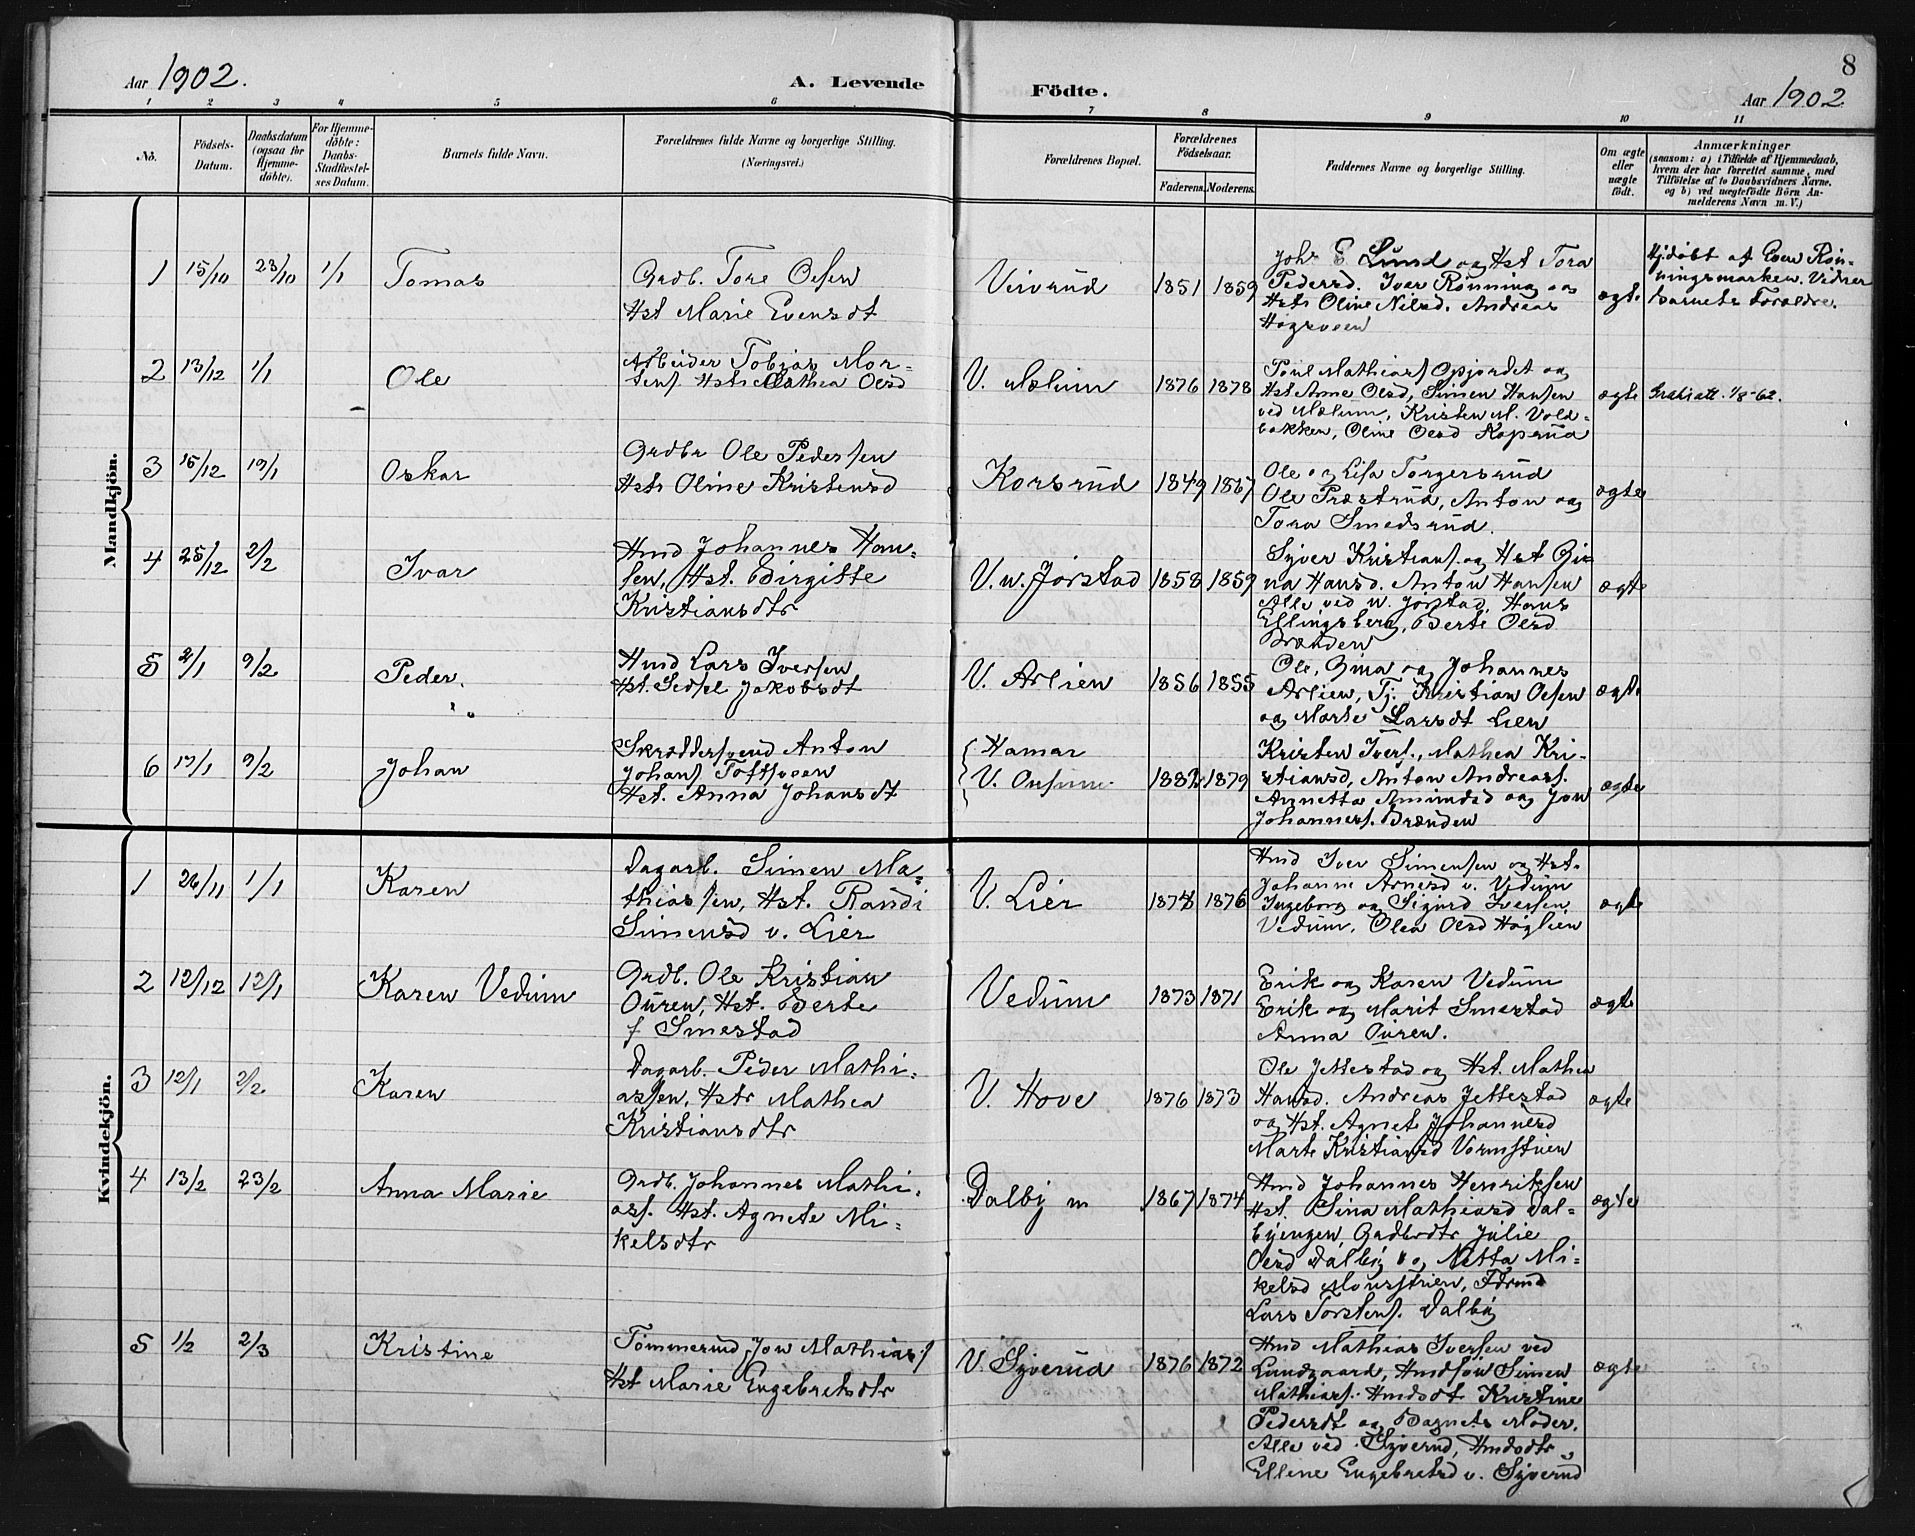 Aar 1902.
A. Levende
Födte.
8
Aar 1902
1 2 3 4 5 6 7 8 9 10 11
No.
Födsels-
Datum.
Daabsdatum
(ogsaa for
Hjemme-
döbte).
For Hjemme-
döbte:
Daabs-
Stadfæstel-
ses Datum.
Barnets fulde Navn.
Forældrenes fulde Navne og borgerlige Stilling.
(Næringsvei.)
Forældrenes Bopæl.
Forældrenes
Födselsaar.
Faderens. Moderens.
Faddernes Navne og borgerlige Stilling.
Om ægte
eller
uægte
födt.
Anmærkninger
(saasom: a) i Tilfælde af Hjemmedaab,
hvem der har forrettet samme, med
Tilföielse af to Daabsvidners Navne,
og b) ved uægtefödte Börn An-
melderens Navn m. V.)
Mandkjön.
1 15/10 23/10 1/1 Tomas
Grdb. Tore Olsen
Hst Marie Evensdt
1851 1859
Johs E Lund og Hst Tora
Pedersd. Iver Rönning og
Hst Oline Nilsd. Andreas
Högsveen
ægte
Hjdöbt af Even Rön-
ningsmarken. Vidner
barnets Forældre.
2 13/12 1/1 Ole
Arbeider Tobias Mor-
tens Hst Mathea Olsd
V. Mælum 1876 1878
Poul Mathias Opjordet og
Hst Anne Olsd, Simen Hansen
ved Mælum, Kristen M. Vold-
bakken, Oline Olsd Koperud
ægte
1/8-62.
3 15/12 19/1 Oskar
Grdbr Ole Pedersen
Hst Oline Kristensd
Korsrud 1849 1867
Ole og Lisa Torgersrud
Ole Præstrud, Anton og
Tora Smedsrud.
ægte
4 25/12 2/2 Ivar
Hmd Johannes Han-
sen, Hst. Birgitte
Kristiansdtr
V. n. Jörstad 1858 1859
Syver Kristians. og Hst Gi-
na Hansd. Anton Hansen
Alle ved n. Jörstad. Hans
Ellingsberg, Berte Olsd
Brænden
ægte
5 2/1 9/2 Peder.
Hmd Lars Iversen
Hst. Sedsel Jakobsdt
V. Arlien 1856 1855
Ole, Gina og Johannes
Arlien, Tj. Kristian Olsen
og Marte Larsdt Lien
ægte
6 17/1 9/2 Johan
Skræddersvend Anton
Johans Toftsveen
Hst. Anna Johansdt
Hamar
V. Onsum 1882 1879
Kristen Ivers., Mathea Kri-
stiansd, Anton Andreass.
Annetta Amundsd og Jon
Johanness. Brænden
ægte
Kvindekjön.
1 26/11 1/1 Karen
Dagarb. Simen Ma-
thiassen, Hst. Randi
Simensd v. Lier
V. Lier 1878 1876
Hmd Iver Simensen og Hst.
Johanne Arnesd v. Vedum
Ingeborg og Sigurd Iversen
Vedum, Olea Olsd Höglien
ægte
2 12/12 12/1 Karen Vedum
Grdb. Ole Kristian
Ouren, Hst. Berte
f. Smestad
Vedum 1873 1871
Erik og Karen Vedum
Erik og Marit Smestad
Anna Ouren.
ægte
3 12/1 2/2 Karen
Dagarb. Peder Mathi-
assen, Hst Mathea
Kristiansdtr
V. Hove 1876 1873
Ole Jettestad og Hst. Mathea
Hansd. Andreas Jettestad
og Hst. Agnet Johannesd
Marte Kristiansd Vormstuen
ægte
4 13/2 23/2 Anna Marie
Grdb. Johannes Mathi-
ass. Hst. Agnete Mi-
kelsdtr
Dalby m 1867 1874
Hmd Johannes Henriksen
Hst. Sina Mathiasd Dal-
byengen, Grdbrdtr Julie
Olsd Dalby og Netta Mi-
kelsd
Lars Torstens. Dalby
ægte
5 1/2 2/3 Kristine
Tömmermd Jon Mathias.
Hst Marie Engebretsdtr
V. Syverud 1876 1872
Hmd Mathias Iversen ved
Lundgaard, Hmdsön Simen
Mathiass. Hmdsdt Kristine
Pedersdt og Barnets Moder.
Alle ved Syverud, Hmdsdtr
Ellene Engebretsd v. Syverud
ægte